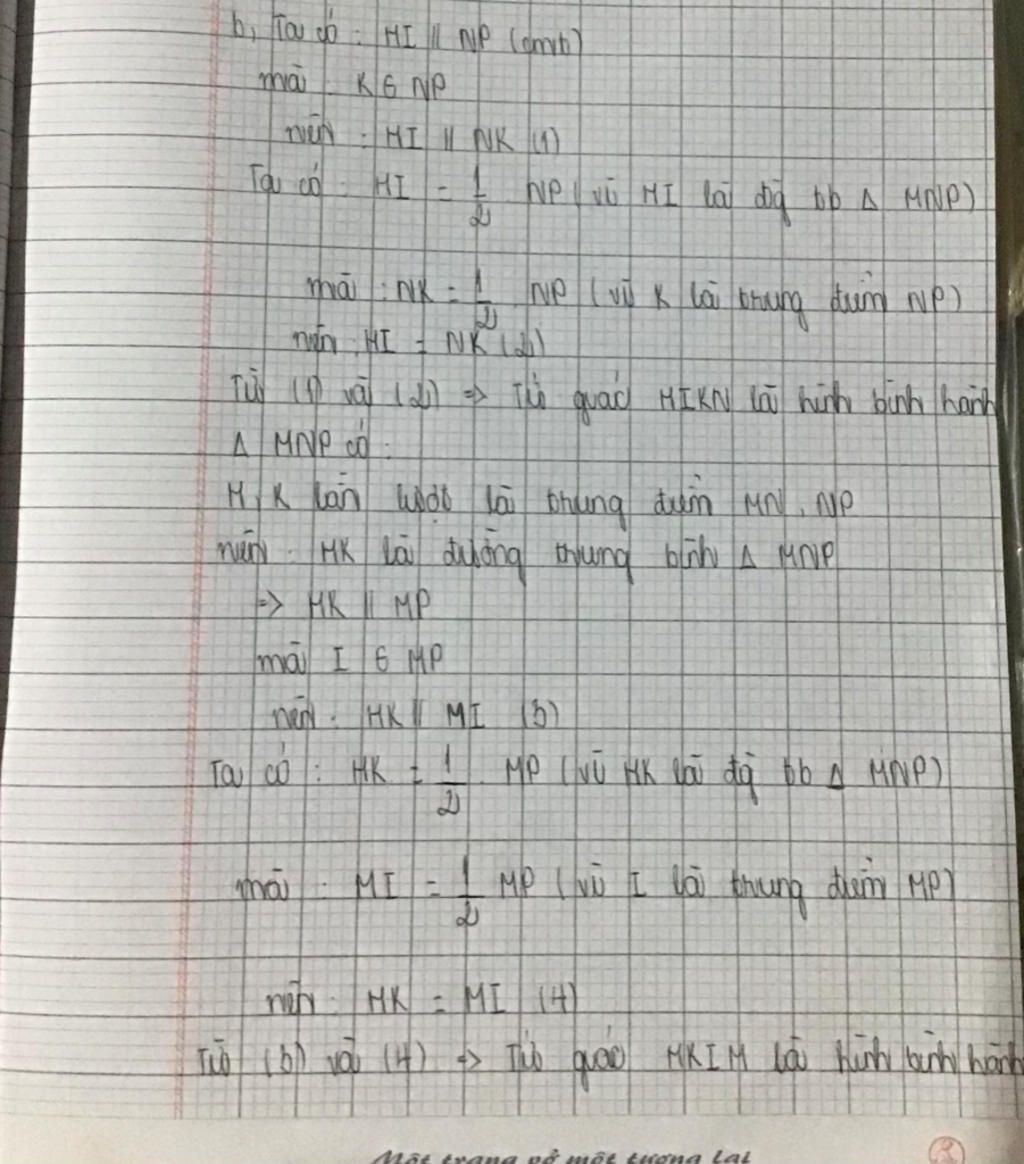 b, Ta có : HI // NP (cmt)
mà : K ∈ NP
nên : HI // NK (1)
Ta có : HI = 1/2 NP (vì HI là đg tb Δ MNP)
mà : NK = 1/2 NP (vì K là trung điểm NP)
nên : HI = NK (2)
Từ (1) và (2) => Tứ giác HIKN là hình bình hành
Δ MNP có :
H, K lần lượt là trung điểm MN, NP
nên : HK là đường trung bình Δ MNP
=> HK // MP
mà I ∈ MP
nên : HK // MI (3)
Ta có : HK = 1/2 MP (vì HK là đg tb Δ MNP)
mà : MI = 1/2 MP (vì I là trung điểm MP)
nên : HK = MI (4)
Từ (3) và (4) => Tứ giác HKIM là hình bình hành
Một trang vở một tương lai